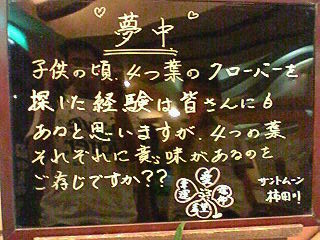 夢中
子供の頃、4つ葉のクローバーを
探した経験は皆さんにも
あると思いますが、4つの葉
それぞれに意味があるのを
ご存じですか??
サントムーン
柿田川